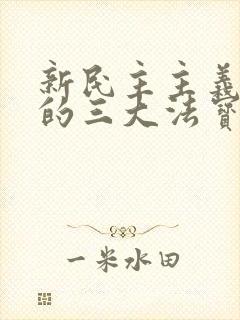 新民主主義
的三大法寶
一米水田